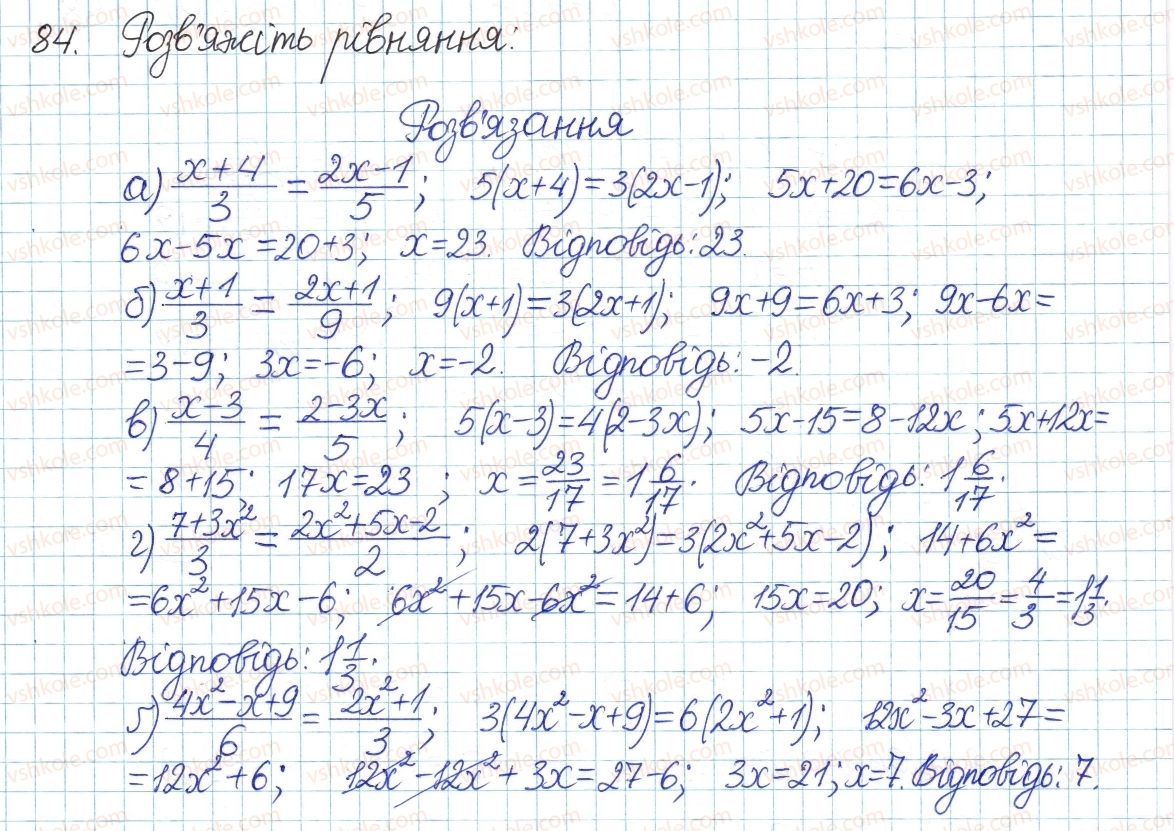 84. Розв'яжіть рівняння:
Розв'язання
а) (x+4)/3 = (2x-1)/5; 5(x+4)=3(2x-1); 5x+20=6x-3;
6x-5x=20+3; x=23. Відповідь: 23.
б) (x+1)/3 = (2x+1)/9; 9(x+1)=3(2x+1); 9x+9=6x+3; 9x-6x=
=3-9; 3x=-6; x=-2. Відповідь: -2.
в) (x-3)/4 = (2-3x)/5; 5(x-3)=4(2-3x); 5x-15=8-12x; 5x+12x=
=8+15; 17x=23; x=23/17=1 6/17. Відповідь: 1 6/17.
г) (7+3x²)/3 = (2x²+5x-2)/2; 2(7+3x²)=3(2x²+5x-2); 14+6x²=
=6x²+15x-6; 6x²+15x-6x²=14+6; 15x=20; x=20/15=4/3=1 1/3.
Відповідь: 1 1/3.
ґ) (4x²-x+9)/6 = (2x²+1)/3; 3(4x²-x+9)=6(2x²+1); 12x²-3x+27=
=12x²+6; 12x²-12x²+3x=27-6; 3x=21; x=7. Відповідь: 7.